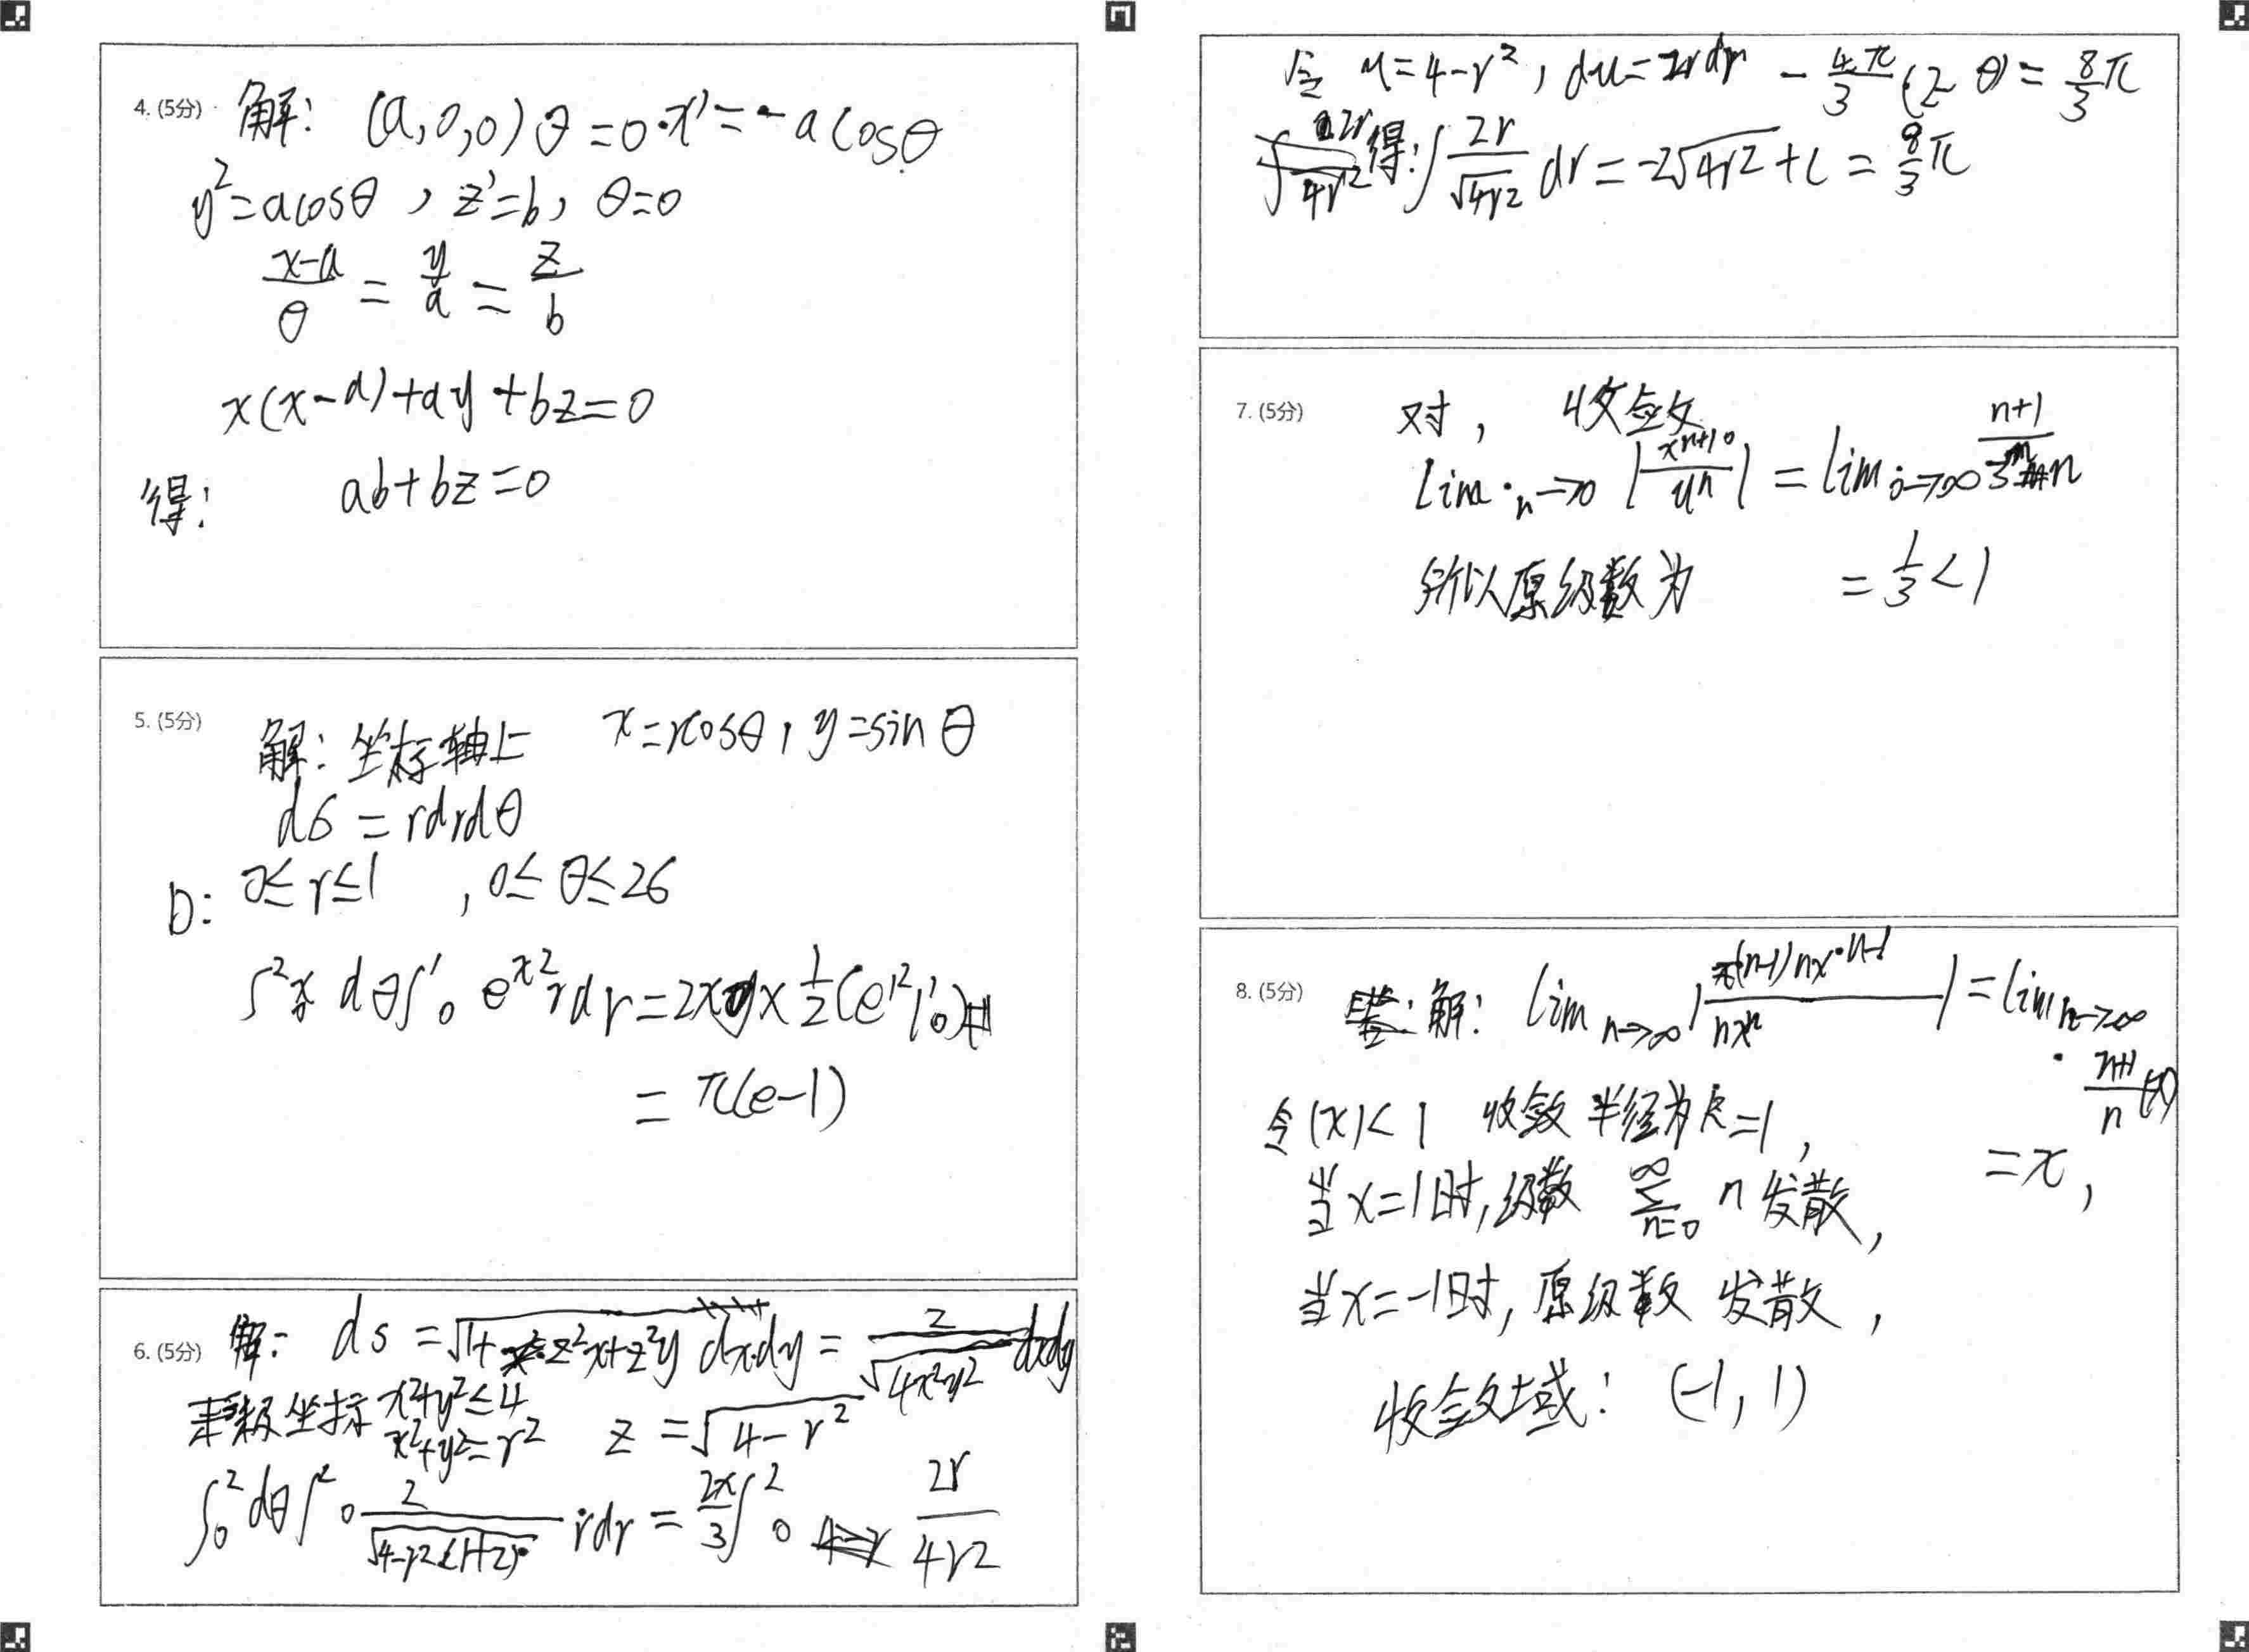 4. (5分) 解: (a,0,0) θ=0·x'=-acosθ
y²=acosθ, z'=b, θ=0
x-a/θ = y/a = z/b
x(x-a)+ay+bz=0
得: ab+bz=0
5. (5分) 解: 坐标轴上 x=rcosθ, y=sinθ
dσ=rdrdθ
D: 0≤r≤1, 0≤θ≤26
∫² dθ∫¹₀ e^x² rdr=2x x 1/2(e^r²|¹₀)
=π(e-1)
6. (5分) 解: ds=√1+z²x+z²y dxdy= 2/√4x²y² dxdy
极坐标 x²+y²≤4
x²+y²=r² z=√4-r²
∫₀² dθ∫²₀ 2/√4-r²(1+z) rdr = 2π/3 ∫²₀ 2r/4r2
令 u=4-r², du=2rdr -4π/3 (2-0)=8/3π
得: ∫ 2r/√4r2 dr=-2√4r2+C=8/3π
7. (5分) 对, 收敛
lim n→∞ |x^n+1/u^n| = lim n→∞ n+1/3n
所以原级数为 =1/3<1
8. (5分) 解: lim n→∞ |(n-1)nx·n-1/nxⁿ|=lim n→∞
n+1/n (x)
令|x|<1 收敛半径为R=1,
=x,
当x=1时,级数 ∞∑n=0 n 发散,
当x=-1时,原级数 发散,
收敛域: (-1,1)